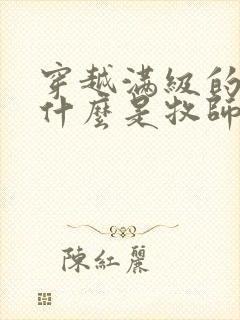 穿越滿級的
什麼是牧師
陳紅麗